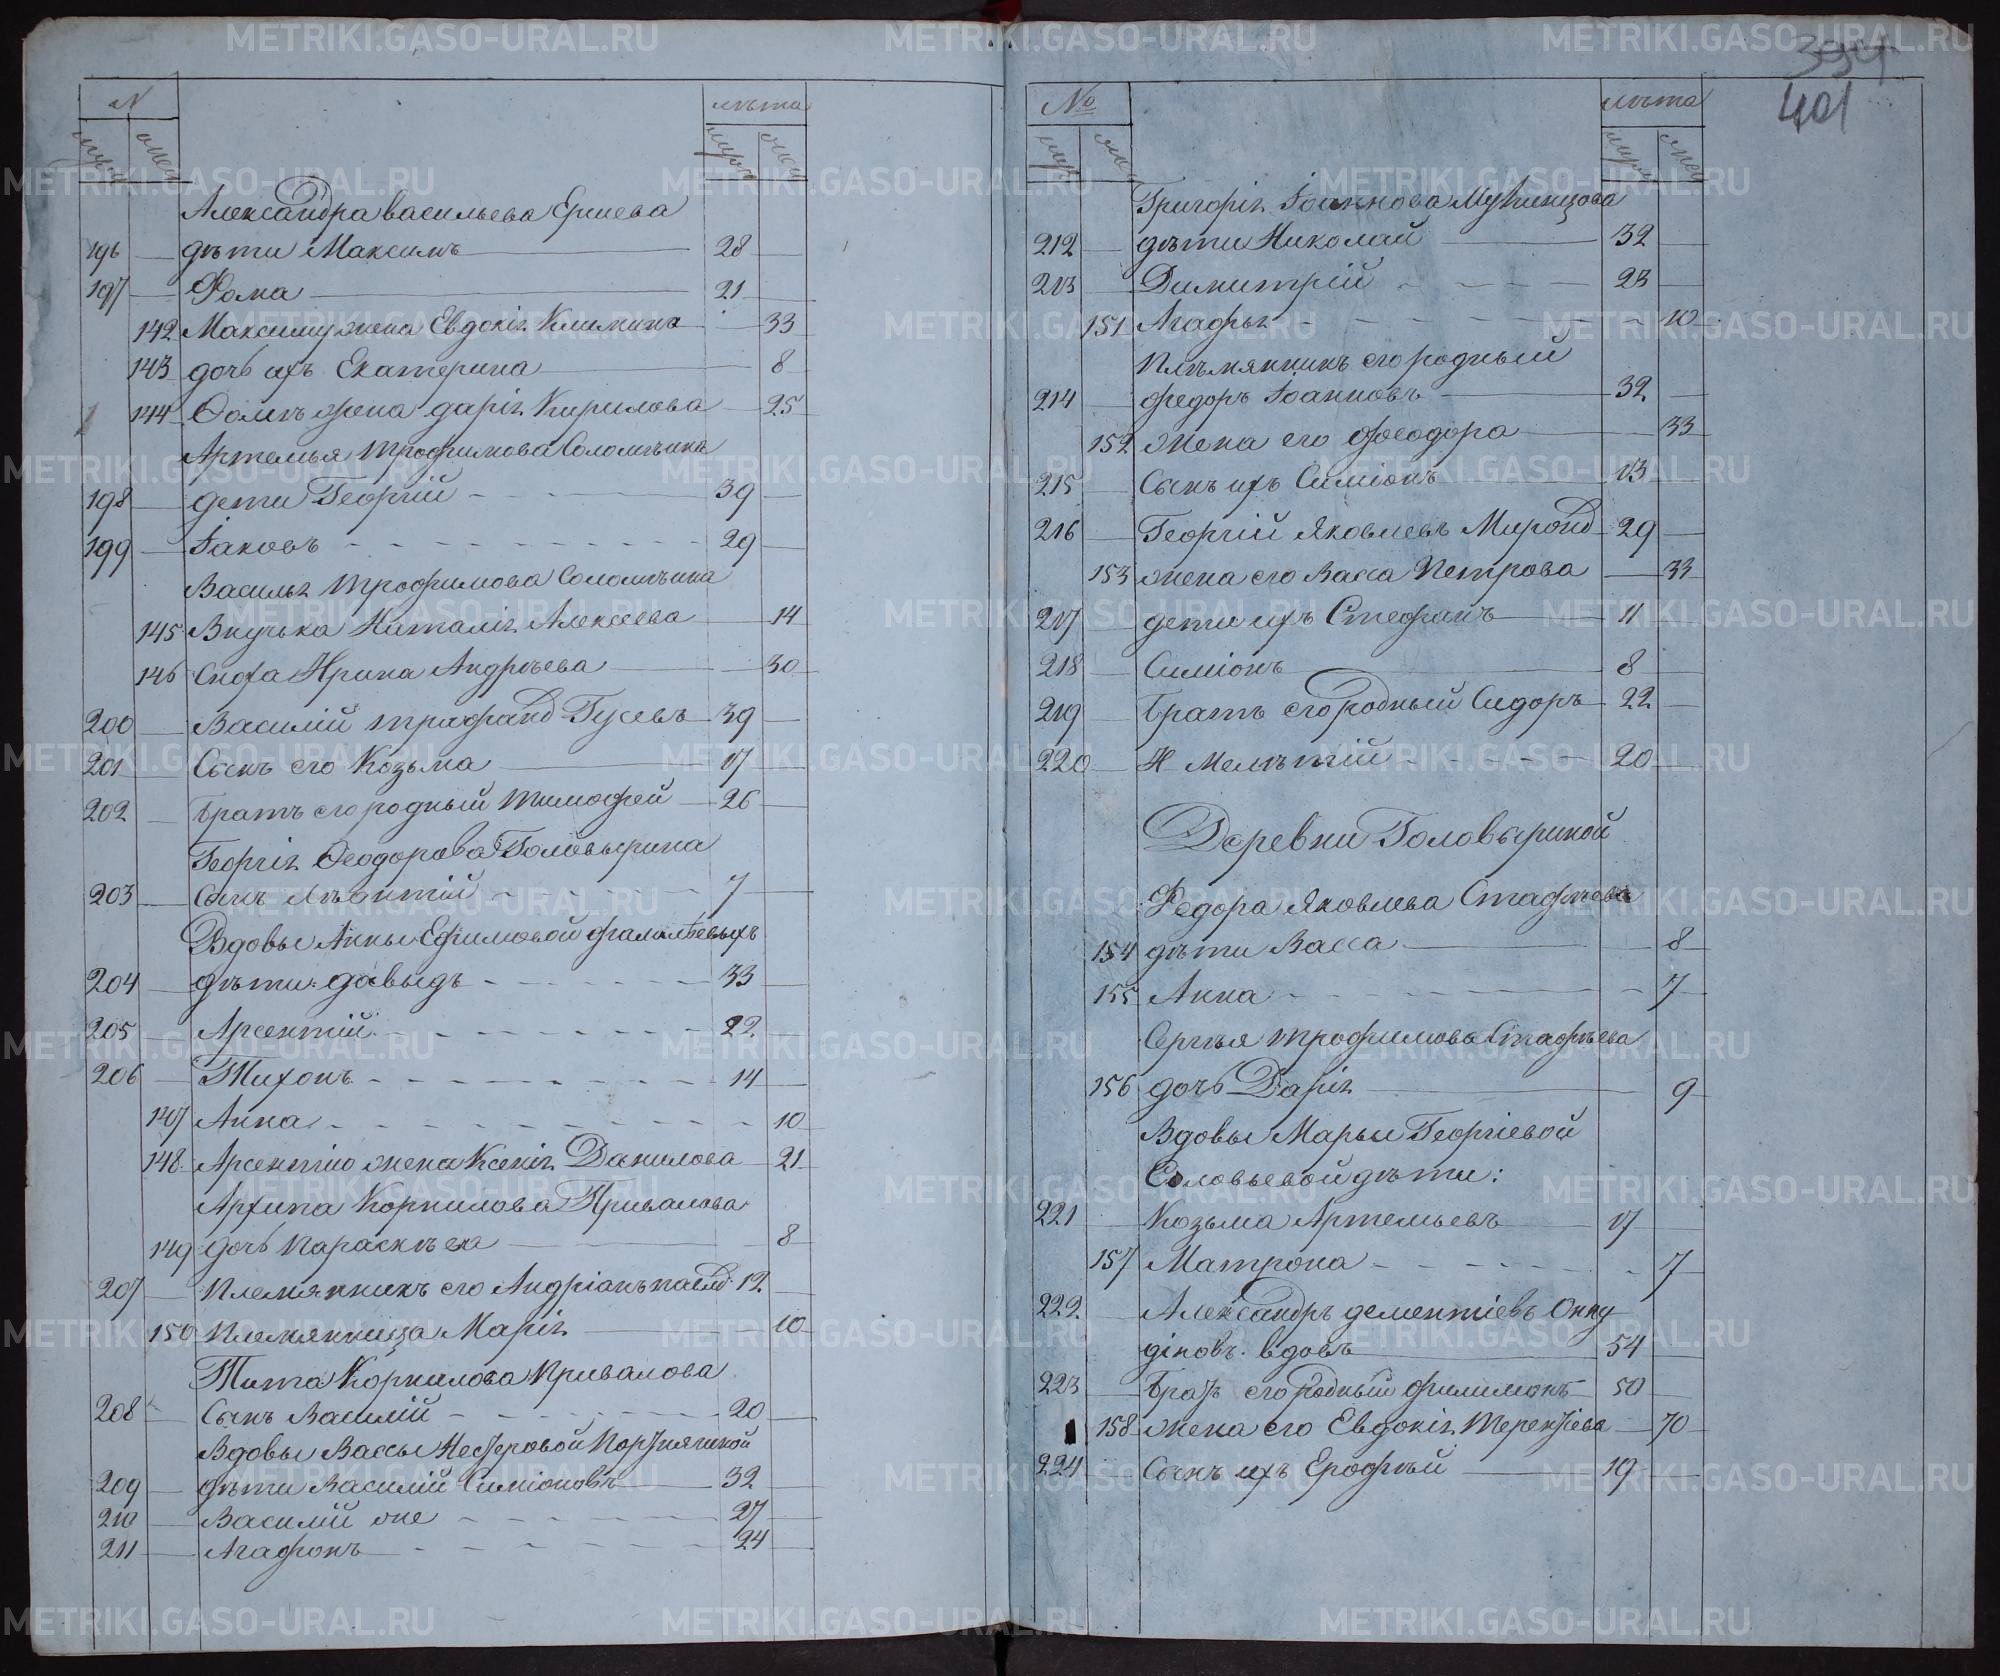 N лѣта
муж жен муж жен
Александра Васильева Ершева
196 дѣти Максимъ 28
197 Фома 21
142 Максиму жена Евдокія Климина 33
143 дочь ихъ Екатерина 8
144 Ѳомѣ жена Дарія Кирилова 25
Артемья Трофимова Соломѣина
198 дети Георгій 39
199 Іаковъ 29
Василья Трофимова Соломѣина
145 Внучька Наталія Алексѣева 14
146 Сноха Ирина Андрѣева 30
200 Василій Гусевъ 39
201 Сынъ его Козьма 17
202 Братъ его родный Тимофей 26
Георгія Ѳеодорова Головырина
203 Сынъ Лѣонтій 7
Вдовы Анны Ефимовой Фалалѣевыхъ
204 дѣти: Давыдъ 33
205 Арсентій 22
206 Тихонъ 14
147 Анна 10
148 Арсентію жена Ксенія Данилова 21
Архипа Корнилова Привалова
149 дочь Параскѣва 8
207 Племянникъ его Андріанъ Павлд 12
150 Племянница Марія 10
Тита Корнилова Привалова
208 Сынъ Василій 20
Вдовы Вассы Нестеровой Портнягиной
209 дѣти Василій Симіоновъ 32
210 Василій оне 27
211 Агафонъ 24
394
401
№ лѣта
муж жен муж жен
Григорія Іоаннова Мутинцова
212 дѣти Николай 32
213 Димитрій 23
151 Агафья 10
Плѣмянникъ его родный
214 Федоръ Іоанновъ 32
152 жена его Феодора 33
215 Сынъ ихъ Симіонъ 13
216 Георгій Яковлевъ Миронд 29
153 жена его Васса Петрова 33
217 дети ихъ Стефанъ 11
218 Симіонъ 8
219 Братъ его родный Сидоръ 22
220 И Мелѣтій 20
Деревни Головыриной
Федора Яковлева Стафѣева
154 дѣти Васса 8
155 Анна 7
Сергѣя Трофимова Стафѣева
156 дочь Дарія 9
Вдовы Марьи Георгіевой
Соловьевой дѣти:
221 Козьма Артемьевъ 17
157 Матрона 7
222 Александръ Дементіевъ Онну
діновъ. вдовъ 54
223 Братъ его родный Филимонъ 50
158 жена его Евдокія Терентіева 70
224 Сынъ ихъ Ерофѣй 19
METRIKI.GASO-URAL.RU